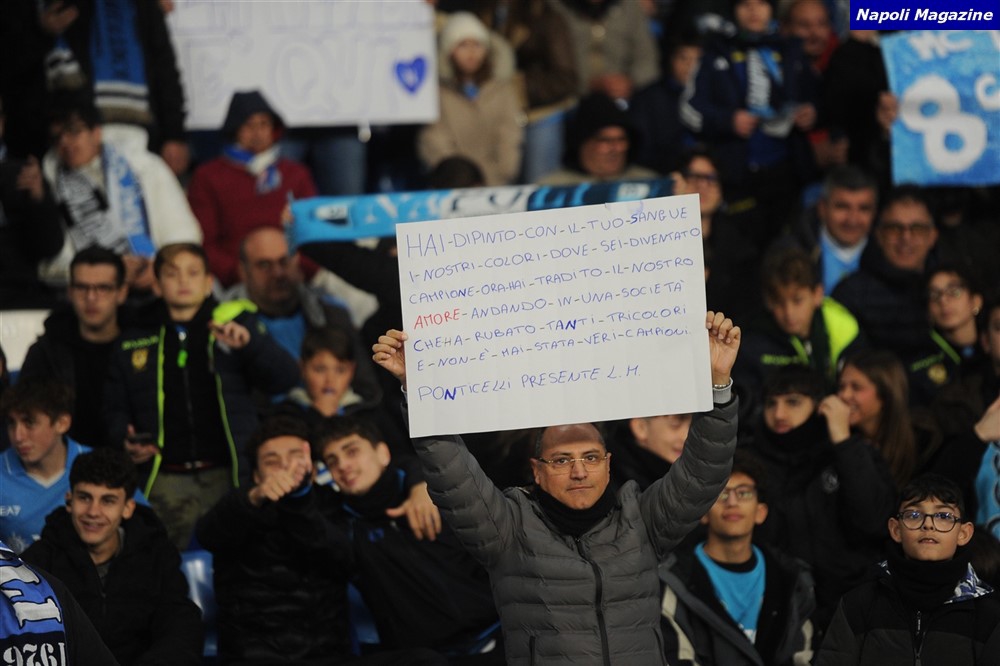 Napoli Magazine
8
HAI-DIPINTO-CON-IL-TUO-SANGUE
I-NOSTRI-COLORI-DOVE-SEI-DIVENTATO
CAMPIONE-ORA-HAI-TRADITO-IL-NOSTRO
AMORE-ANDANDO-IN-UNA-SOCIETA'
CHEHA-RUBATO-TANTI-TRICOLORI
E-NON-E'-MAI-STATA-VERI-CAMPIONI
PONTICELLI PRESENTE L.M.
1926